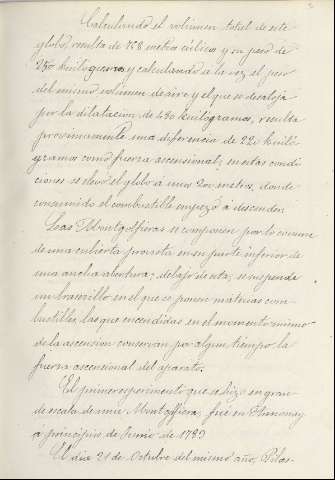 Calculando el volúmen total de este
globo, resulta de metros cúbicos y su peso de
250 kuilógramos y calculando a la vez el peso
del mismo volumen de aire y el que se desaloja
por la dilatacion, de 450 kuilógramos, resulta
proximamente una diferencia de kuiló-
gramos como fuerza ascensional; en estas condi-
ciones se elevó el globo á unos 200 metros, donde
consumido el combustible empezó á descender.
Las Montgolfieras se componen por lo comun
de una cubierta provista en su parte inferior de
una ancha abertura; debajo de esta, se suspende
un braserillo en el que se ponen materias com-
bustibles, las que encendidas en el momento mismo
de la ascension conservan por algun tiempo la
fuerza ascensional del aparato.
El primer esperimento que se hizo en gran-
de escala de una Montgolfiera, fué en Annonay
á principios de Junio de 1783
El dia 21 de Octubre del mismo año, Pilas-